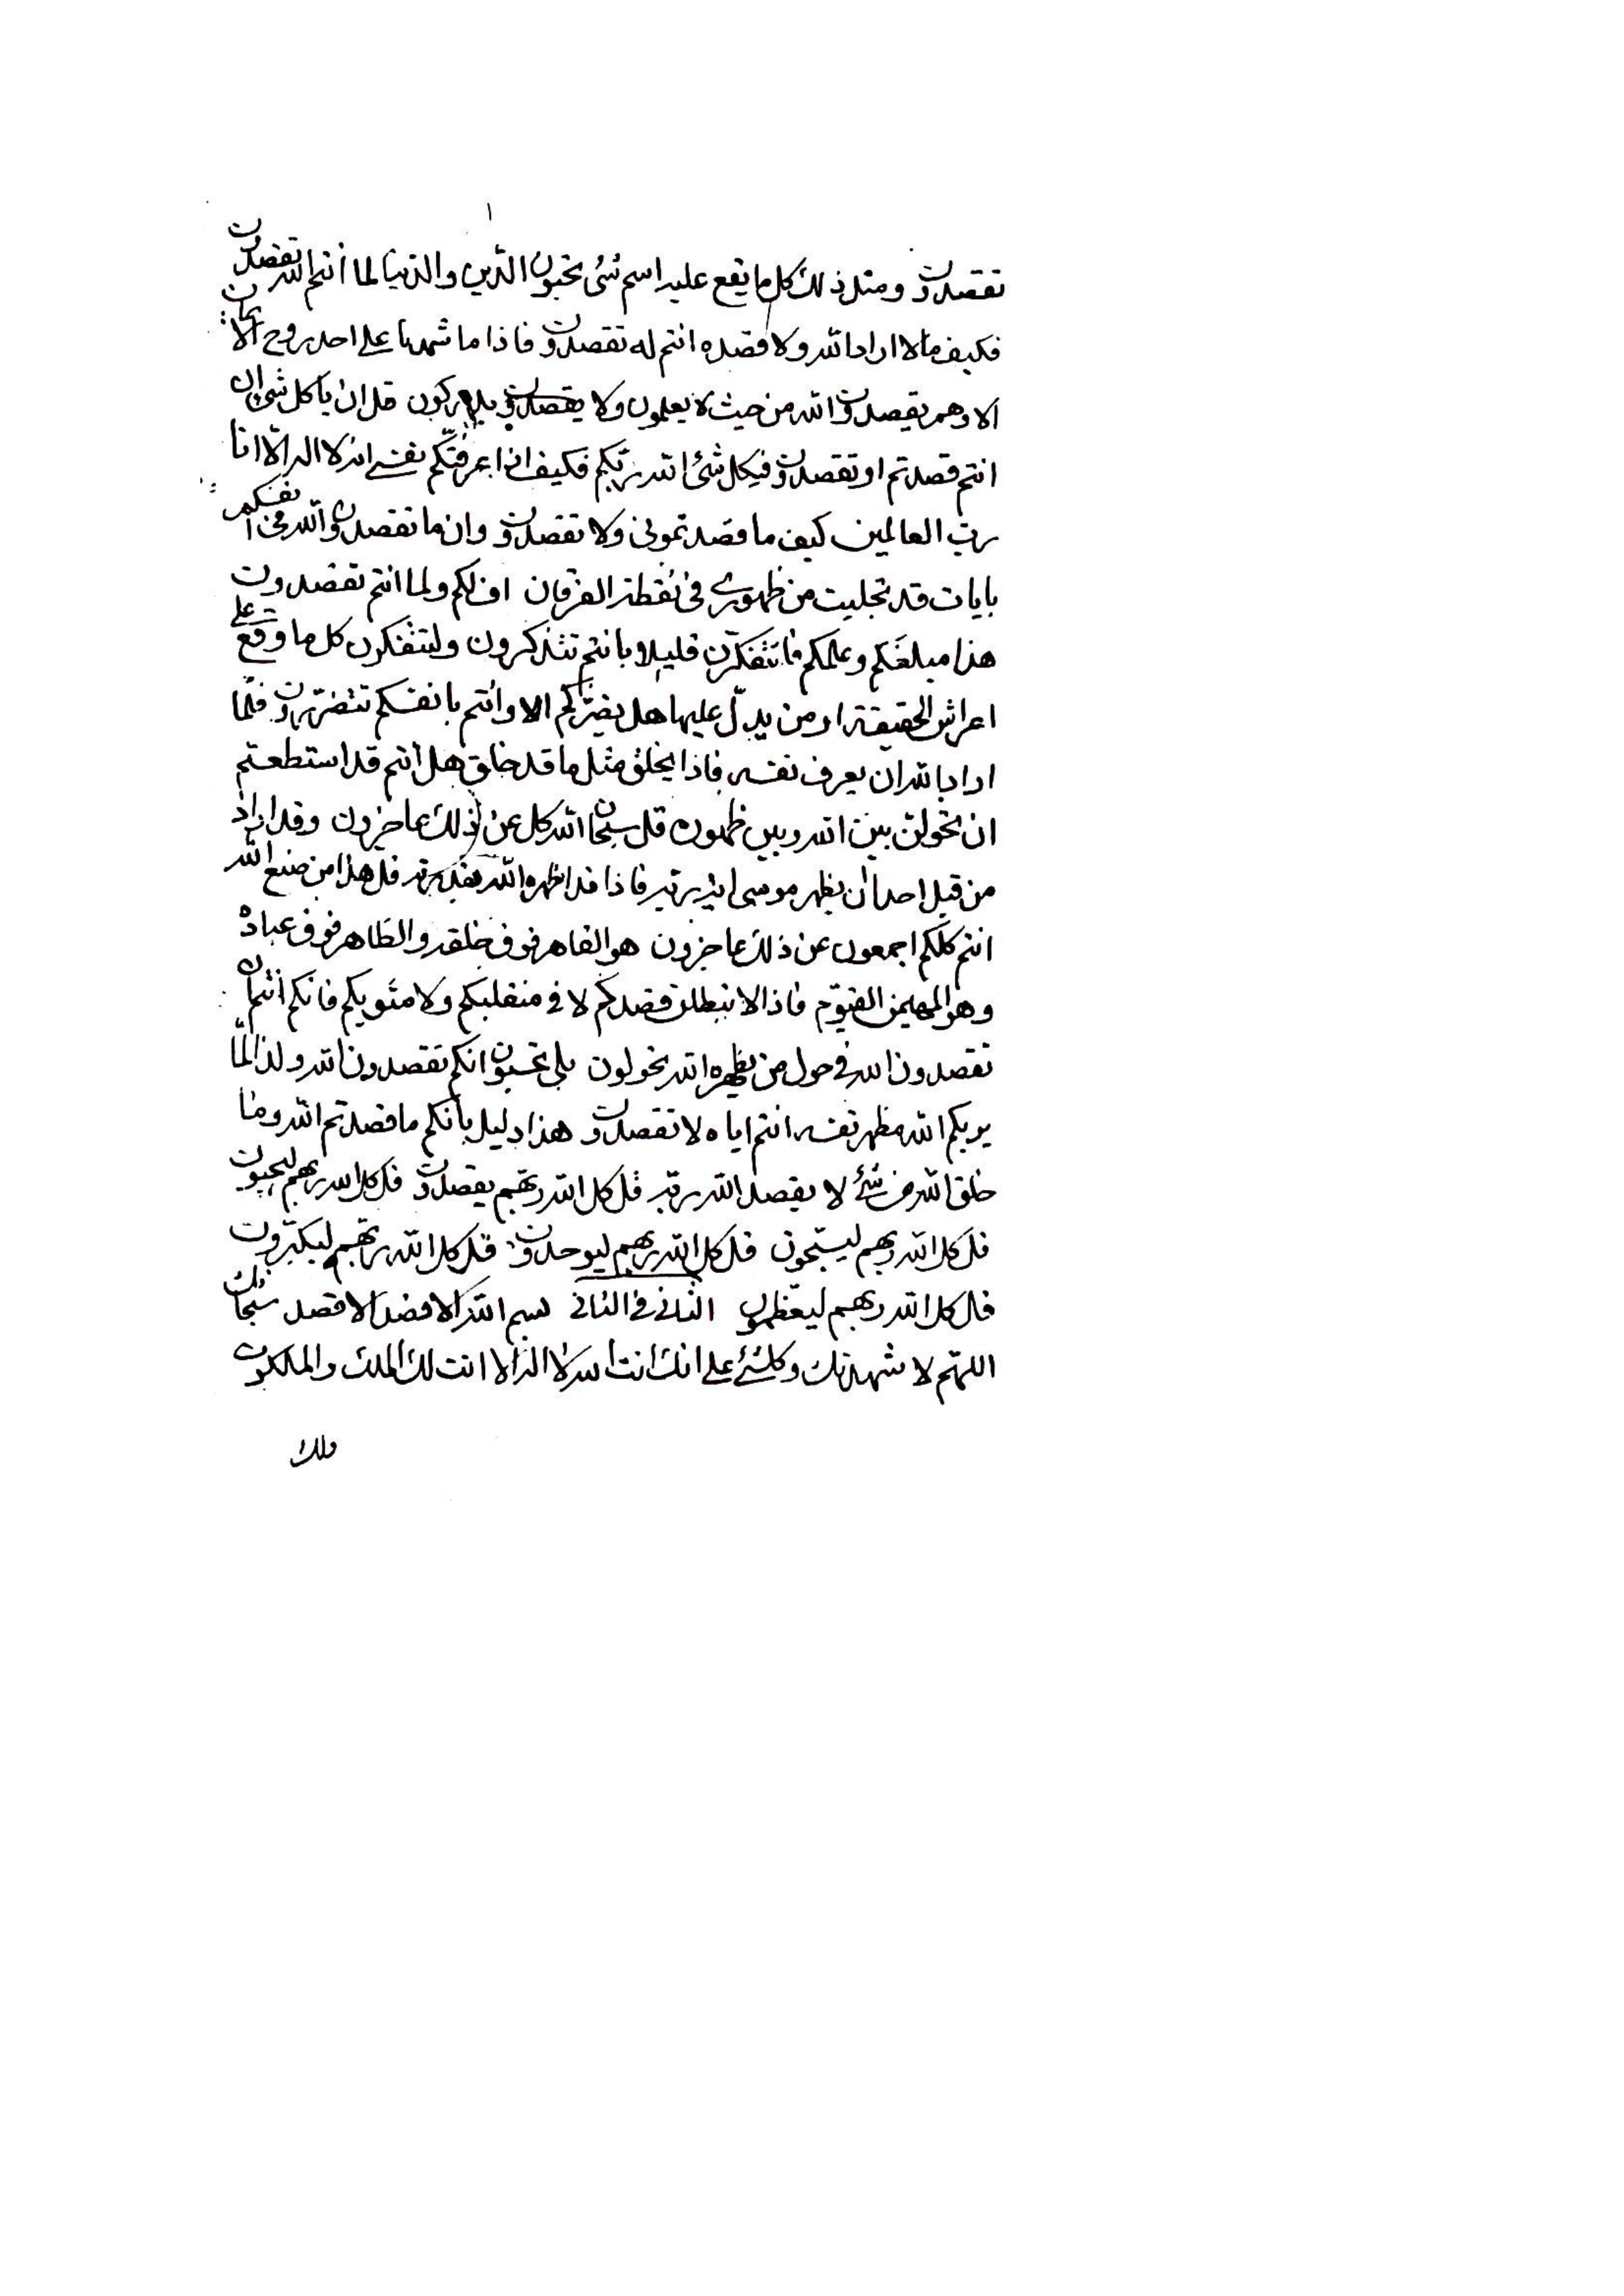 ١
تقصدون ومثل ذلك كل ما يقع عليه اسم شئ تحبون الدين والدنيا لما أنتم الله تقصدون
فكيف مالا اراد الله ولا قصده انتم له تقصدون فاذا ما شهدنا على احد بروح الايمان
الا وهم يقصدون الله من حيث لا يعلمون ولا يقصدون يدركون قل ان يا كل شئ ان
انتم قصدتم او تقصدون في كل شئ الله ربكم فكيف اذا عرفتكم نفسى انه لا اله الا انا
رب العالمين كيف ما قصدتمونى ولا تقصدون وان ما تقصدون الله فى انفسكم
بايات قد تجليت من ظهورى فى نقطة الفرقان اف لكم ولما انتم تقصدون
هذا مبلغكم وعلمكم فلتتفكرن قليلا ما انتم تتذكرون ولتتفكرن كل ما وقع على
اعراش الحقيقة او من يدل عليها هل يضركم الا وانتم بانفسكم تتضررون فلما
اراد الله ان يعرف نفسه فاذا يخلق مثل ما قد خلق هل أنتم قد استطعتم
ان تحولن بين الله وبين ظهوره قل سبحان الله كل عن ذلك عاجزون وقد اراد
من قبل احد ان يظهر موسى اثر ربه فاذا قد اظهره الله بقدرته قل هذا من صنع الله
انتم كلكم اجمعون عن ذلك عاجزون هو القاهر فوق خلقه والظاهر فوق عباده
وهو المهيمن القيوم فاذا لا تبطلن قصدكم لا فى منقلبكم ولا مثويكم فانكم أنتم ان
تقصدون الله فى حول من يظهره الله تحولون بلى تحسبون انكم تقصدون الله ولذا لما
يريكم الله مظهر نفسه انتم اياه لا تقصدون هذا دليل بأنكم ما قصدتم الله وما
خلق الله من شئ لا يقصد الله ربه قل كل الله ربهم يقصدون قل كل الله ربهم ليحبون
قل كل الله ربهم ليسبحون قل كل الله ربهم ليوحدون قل كل الله ربهم ليكبرون
قل كل الله ربهم ليعظمون الثانى فى الثانى بسم الله الاقصد الاقصد سبحانك
اللهم لاشهدنك وكلشئ على انك انت الله لا اله الا انت لك الملك والملكوت
ولك